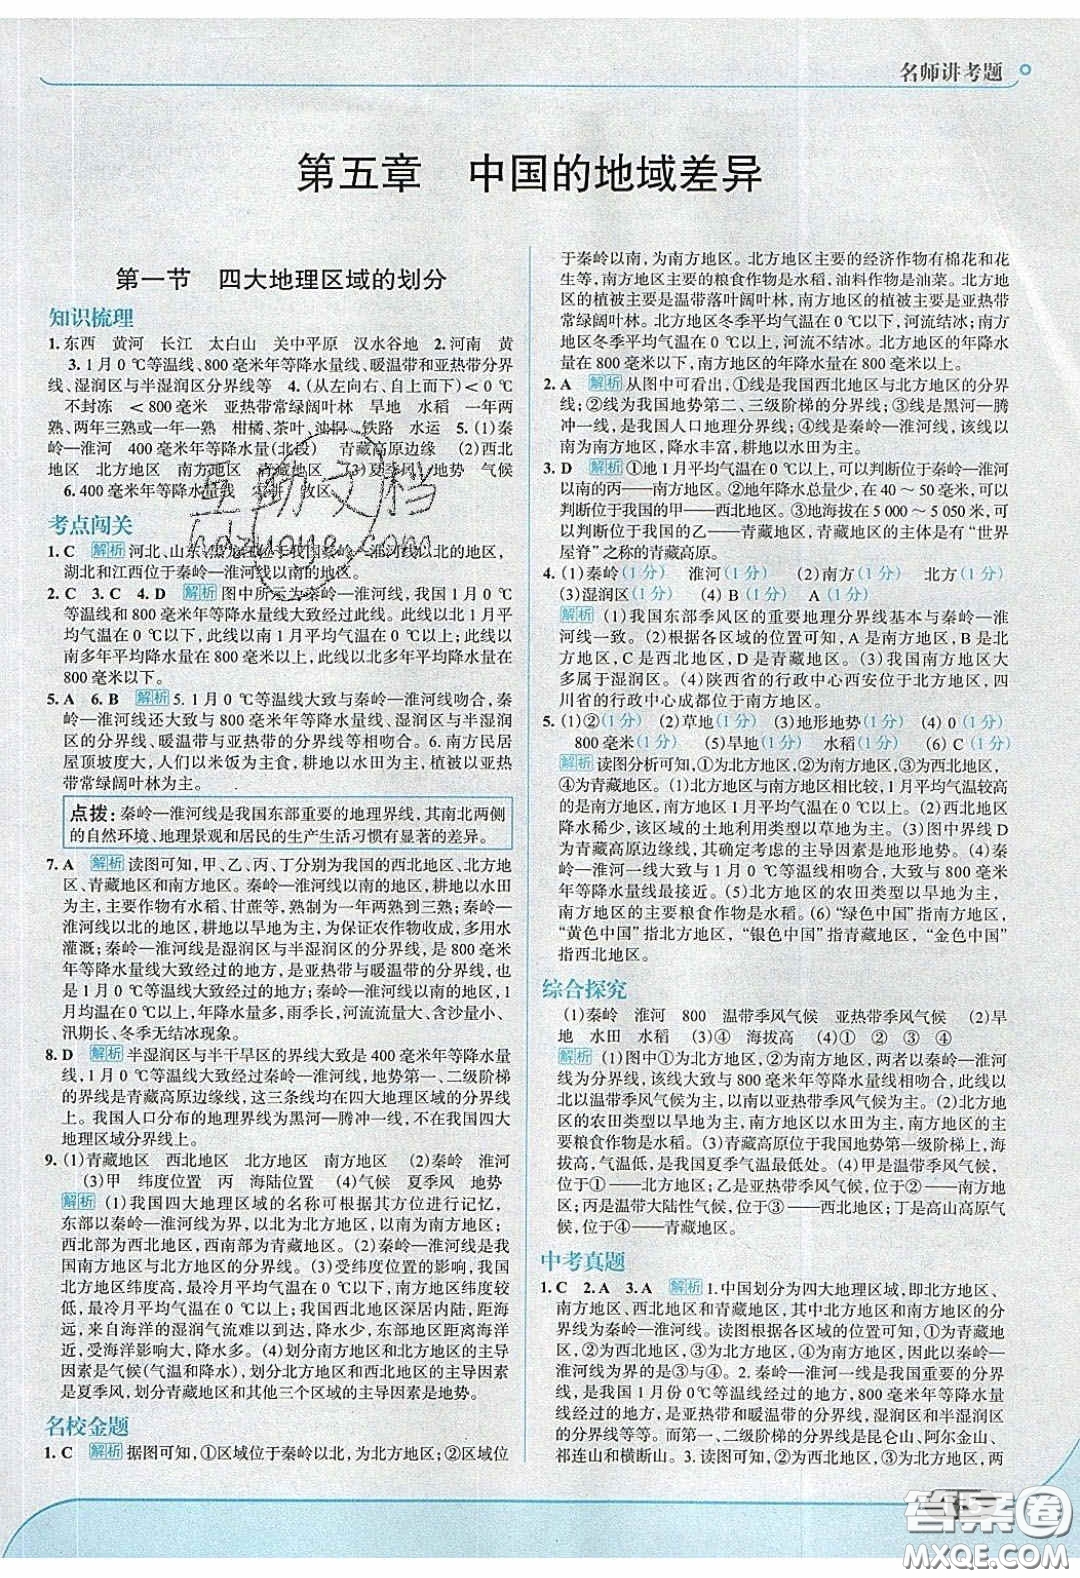 名师讲考题
第五章 中国的地域差异
第一节 四大地理区域的划分
知识梳理
1.东西 黄河 长江 太白山 关中平原 汉水谷地 2.河南 黄
3.1月0 ℃等温线、800毫米年等降水量线、暖温带和亚热带分界
线、湿润区与半湿润区分界线等 4.(从左向右、自上而下)<0 ℃
不封冻 <800毫米 亚热带常绿阔叶林 旱地 水稻 一年两
熟、两年三熟或一年一熟 柑橘、茶叶、油桐、铁路 水运 5.(1)秦
岭—淮河 400毫米年等降水量(北段) 青藏高原边缘 (2)西北
地区 北方地区 南方地区 青藏地区 (3)夏季风 地势 气候
6.400毫米年等降水量线 农耕 牧区
考点闯关
1.C 解析 河北、山东、黑龙江位于我国秦岭—淮河线以北的地区,
湖北和江西位于秦岭—淮河线以南的地区。
2.C 3.C 4.D 解析 图中所示为秦岭—淮河线,我国1月0 ℃
等温线和800毫米年等降水量线大致经过此线。此线以北1月
平均气温在0 ℃以下,此线以南1月平均气温在0 ℃以上;此线以
南多年平均降水量在800毫米以上,此线以北多年平均降水量在
800毫米以下。
5.A 6.B 解析 5.1月0 ℃等温线大致与秦岭—淮河线吻合,秦
岭—淮河线还大致与800毫米年等降水量线、湿润区与半湿润
区的分界线、暖温带与亚热带的分界线等相吻合。6.南方民居
屋顶坡度大,人们以米饭为主食,耕地以水田为主,植被以亚热
带常绿阔叶林为主。
点拨:秦岭—淮河线是我国东部重要的地理界线,其南北两侧
的自然环境、地理景观和居民的生产生活习惯有显著的差异。
7.A 解析 读图可知,甲、乙、丙、丁分别为我国的西北地区、北方地
区、青藏地区和南方地区。秦岭—淮河线以南的地区,耕地以水田
为主,主要作物有水稻、甘蔗等,熟制为一年两熟到三熟;秦岭—
淮河线以北的地区,耕地以旱地为主,为保证农作物收成,多用水
灌溉;秦岭—淮河线是湿润区与半湿润区的分界线,是800毫米
年等降水量线大致经过的地方,是亚热带与暖温带的分界线,也
是1月0 ℃等温线大致经过的地方;秦岭—淮河线以南的地区,1
月均温在0 ℃以上,年降水量多,雨季长,河流流量大、含沙量小、
汛期长、冬季无结冰现象。
8.D 解析 半湿润区与半干旱区的界线大致是400毫米年等降水
量线,1月0 ℃等温线大致经过秦岭—淮河线,地势第一、二级阶梯
的界线是青藏高原边缘线,这三条线均在四大地理区域的分界线
上。我国人口分布的地理界线为黑河—腾冲一线,不在我国四大
地理区域分界线上。
9.(1)青藏地区 西北地区 北方地区 南方地区 (2)秦岭 淮河
(3)甲 纬度位置 丙 海陆位置 (4)气候 夏季风 地势
解析 (1)我国四大地理区域的名称可根据其方位进行记忆,
东部以秦岭—淮河线为界,以北为北方地区,以南为南方地区;
西北部为西北地区,西南部为青藏地区。(2)秦岭—淮河线是我国
南方地区与北方地区的分界线。(3)受纬度位置的影响,我国
北方地区纬度高,最冷月平均气温在0 ℃以下,南方地区纬度较
低,最冷月平均气温在0 ℃以上;我国西北地区深居内陆,距海
远,来自海洋的湿润气流难以到达,降水稀少,东部地区距海近,
受海洋影响大,降水多。(4)划分南方地区和北方地区的主导因
因素是气候(气温和降水),划分北方地区和西北地区的主导因素
是夏季风,划分青藏地区和其他三个区域的主导因素是地势。
名校金题
1.C 解析 据图可知,①区域位于秦岭以北,为北方地区;②区域位
于秦岭以南,为南方地区。北方地区主要的经济作物有棉花和花
生等,南方地区主要的粮食作物是水稻,油料作物是油菜。北方地
区的植被主要是温带落叶阔叶林,南方地区的植被主要是亚热带
常绿阔叶林。北方地区冬季平均气温在0 ℃以下,河流结冰;南方
地区冬季平均气温在0 ℃以上,河流不结冰。北方地区的年降水
量在800毫米以下,南方地区的年降水量在800毫米以上。
2.A 解析 从图中可看出,①线是我国西北地区与北方地区的分界
线;②线为我国地势第二、三级阶梯的分界线;③线是黑河—腾
冲一线,是我国人口地理分界线;④线是秦岭—淮河线,该线以
南为南方地区,降水丰富,耕地以水田为主。
3.D 解析 ①地1月平均气温在0 ℃以上,可以判断位于秦岭—淮河
以南的丙——南方地区。②地年降水总量少,在40~50毫米,可以
判断位于我国的甲——西北地区。③地海拔在5 000~5 050米,可
以判断位于我国的乙——青藏地区,青藏地区的主体是有“世界
屋脊”之称的青藏高原。
4.(1)秦岭(1分) 淮河(1分) (2)南方(1分) 北方(1分)
(3)湿润区(1分) (4)B(1分) A(1分)
解析 (1)我国东部季风区的重要地理分界线基本与秦岭—淮
河线一致。(2)根据各区域的位置可知,A是南方地区,B是北
方地区,C是西北地区,D是青藏地区。(3)我国南方地区大
多属于湿润区。(4)陕西省的行政中心西安位于北方地区,四
川省的行政中心成都位于南方地区。
5.(1)②(1分) (2)草地(1分) (3)地形地势(1分) (4)0(1分)
800毫米(1分) (5)旱地(1分) 水稻(1分) (6)C(1分)
解析 读图分析可知,①为北方地区,②为南方地区,③为西北地区,
④为青藏地区。(1)北方地区与南方地区相比较,1月平均气温
较高的是南方地区,即图中的②地区。(2)③是西北地区,该地区
降水稀少,该区域的土地利用类型以草地为主。(3)图中界线D
为青藏高原边缘线,其确定考虑的主导因素是地形地势。(4)秦
岭—淮河一线大致与1月0 ℃等温线相吻合,大致与800毫米
年等降水量线最接近。(5)北方地区的农田类型以旱地为主,
南方地区的主要粮食作物是水稻。(6)“绿色中国”指南方地区,
“黄色中国”指北方地区,“银色中国”指青藏地区,“金色中国”
指西北地区。
综合探究
(1)秦岭 淮河 800 温带季风气候 亚热带季风气候 (2)旱
地 水田 水稻 (3)④ 海拔高 (4)① ② ③ ④
解析 (1)图中①为北方地区,②为南方地区,两者以秦岭—淮河
线为分界线,该线大致与800毫米年等降水量线吻合,此线以
北以温带季风气候为主,以南以亚热带季风气候为主。(2)北方地
区的农田类型以旱地为主,南方地区以水田为主,南方地区的主
要粮食作物是水稻。(3)青藏高原位于我国地势第一级阶梯上,海
拔高,气温低,是我国夏季气温最低处。(4)甲是温带季风气候,
位于①——北方地区;乙是亚热带季风气候,位于②——南方地
区;丙是温带大陆性气候,位于③——西北地区;丁是高山高原气
候,位于④——青藏地区。
中考真题
1.C 2.A 3.A 解析 1.中国划分为四大地理区域,即北方地区、
南方地区、西北地区和青藏地区,其中北方地区和南方地区的分
界线为秦岭—淮河线。读图根据各区域的位置可知,①为青藏地
区,②为西北地区,③为北方地区,④为南方地区,因此以秦岭—
淮河线为界的是③与④。2.秦岭—淮河一线是我国重要的分界
线,是我国1月份0℃等温线经过的地方,是800毫米年等降水
量线经过的地方,是亚热带和暖温带的分界线,是湿润区和半湿
润区的分界线,是亚热带季风气候和温带季风气候的分界线,是
水田和旱地的分界线,是南方地区和北方地区的分界线,是水稻
和小麦的分界线等等。而第一、二级阶梯的分界线是昆仑山、阿尔金山、
祁连山和横断山。3.读图可知,②为西北地区,③为北方地区,两
互动文档
hdzuoye.com
答案圈
MXQE.COM